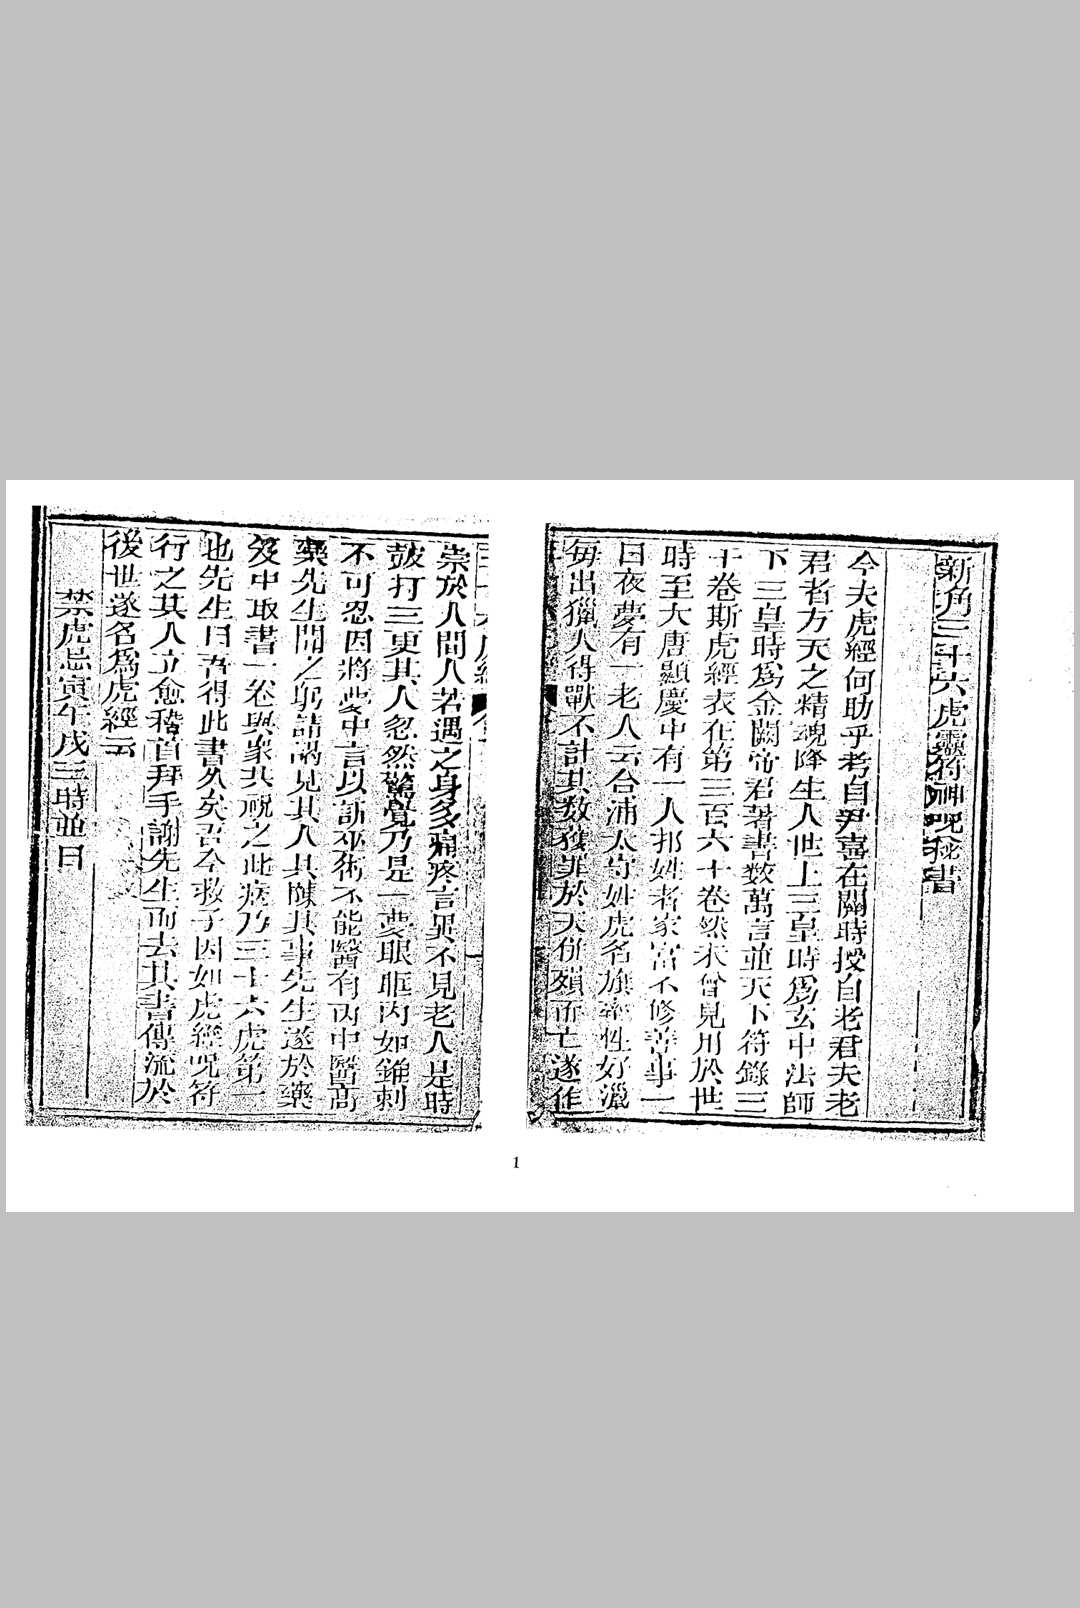 新角三十六虎靈符神呪秘書
今夫虎經何助乎考自尹喜在關時授自老君夫老
君者方天之精魂降生人世上三皇時爲玄中法師
下三皇時爲金闕帝君著書数萬言並天下符錄三
十卷斯虎經表在第三百六十卷然未曾見用於世
時至大唐顯慶中有一人邦姓者家富不修善事一
日夜夢有一老人云合浦太守姓虎名旗牽性好瀛
每出獵人得獸不計其数獲罪於天併殞而亡遂作
祟於人間人若遇之身多痛疼言畢不見老人是時
皷打三更其人忽然驚覺乃是一夢眼眶内如錐刺
不可忍因將夢中言以訴巫術不能醫有丙中醫高
藥先生聞之躬請謁見其人具陳其事先生遂於藥
笈中取書一卷與衆共視之此病乃三十六虎第一
也先生曰吾得此書久矣吾今救子因如虎經呪符
行之其人立愈稽首拜手謝先生而去其書傳流於
後世遂名爲虎經云
禁虎忌寅午戌三時並日
1